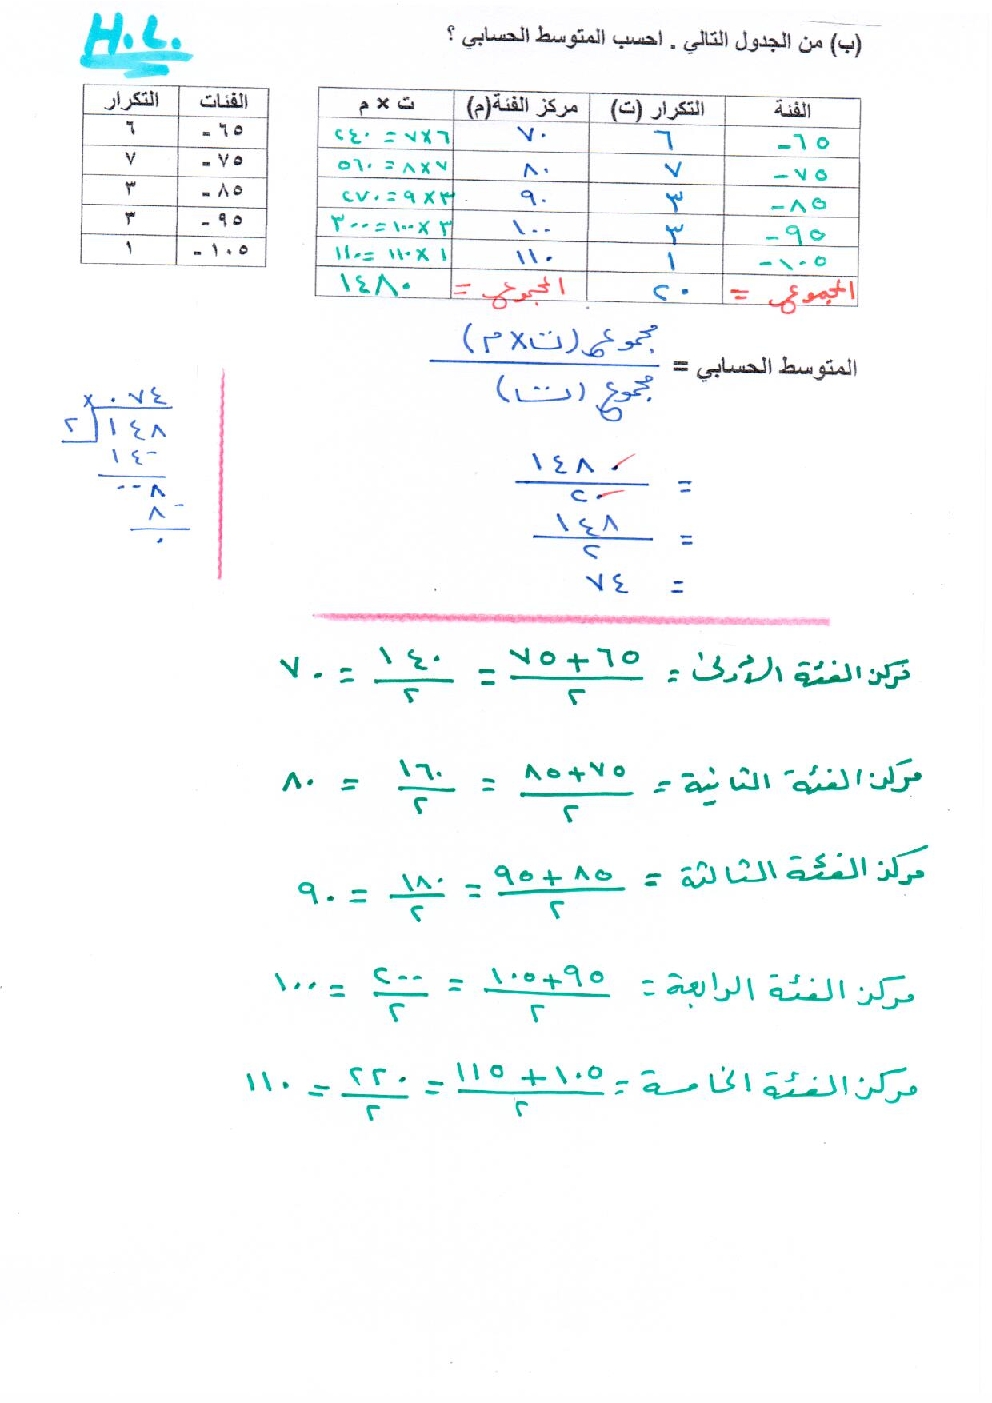 H.L.
(ب) من الجدول التالي . احسب المتوسط الحسابي ؟
الفئة | التكرار (ت) | مركز الفئة(م) | ت × م
٦٥- | ٦ | ٧٠ | ٦×٧ = ٤٢٠
٧٥- | ٧ | ٨٠ | ٧×٨ = ٥٦٠
٨٥- | ٣ | ٩٠ | ٣×٩ = ٢٧٠
٩٥- | ٣ | ١٠٠ | ٣×١٠٠ = ٣٠٠
١٠٥- | ١ | ١١٠ | ١×١١٠ = ١١٠
المجموع = | ٢٠ | المجموع = | ١٤٨٠
الفئات | التكرار
٦٥- | ٦
٧٥- | ٧
٨٥- | ٣
٩٥- | ٣
١٠٥- | ١
المتوسط الحسابي = مجموع (ت×م) / مجموع (ت)
= ١٤٨٠ / ٢٠
= ١٤٨ / ٢
= ٧٤
× ٠٧٤
٢ ١٤٨
١٤ -
٠٠٨
٨ -
٠
مركز الفئة الأولى = ٦٥+٧٥ / ٢ = ١٤٠ / ٢ = ٧٠
مركز الفئة الثانية = ٧٥+٨٥ / ٢ = ١٦٠ / ٢ = ٨٠
مركز الفئة الثالثة = ٨٥+٩٥ / ٢ = ١٨٠ / ٢ = ٩٠
مركز الفئة الرابعة = ٩٥+١٠٥ / ٢ = ٢٠٠ / ٢ = ١٠٠
مركز الفئة الخامسة = ١٠٥+١١٥ / ٢ = ٢٢٠ / ٢ = ١١٠